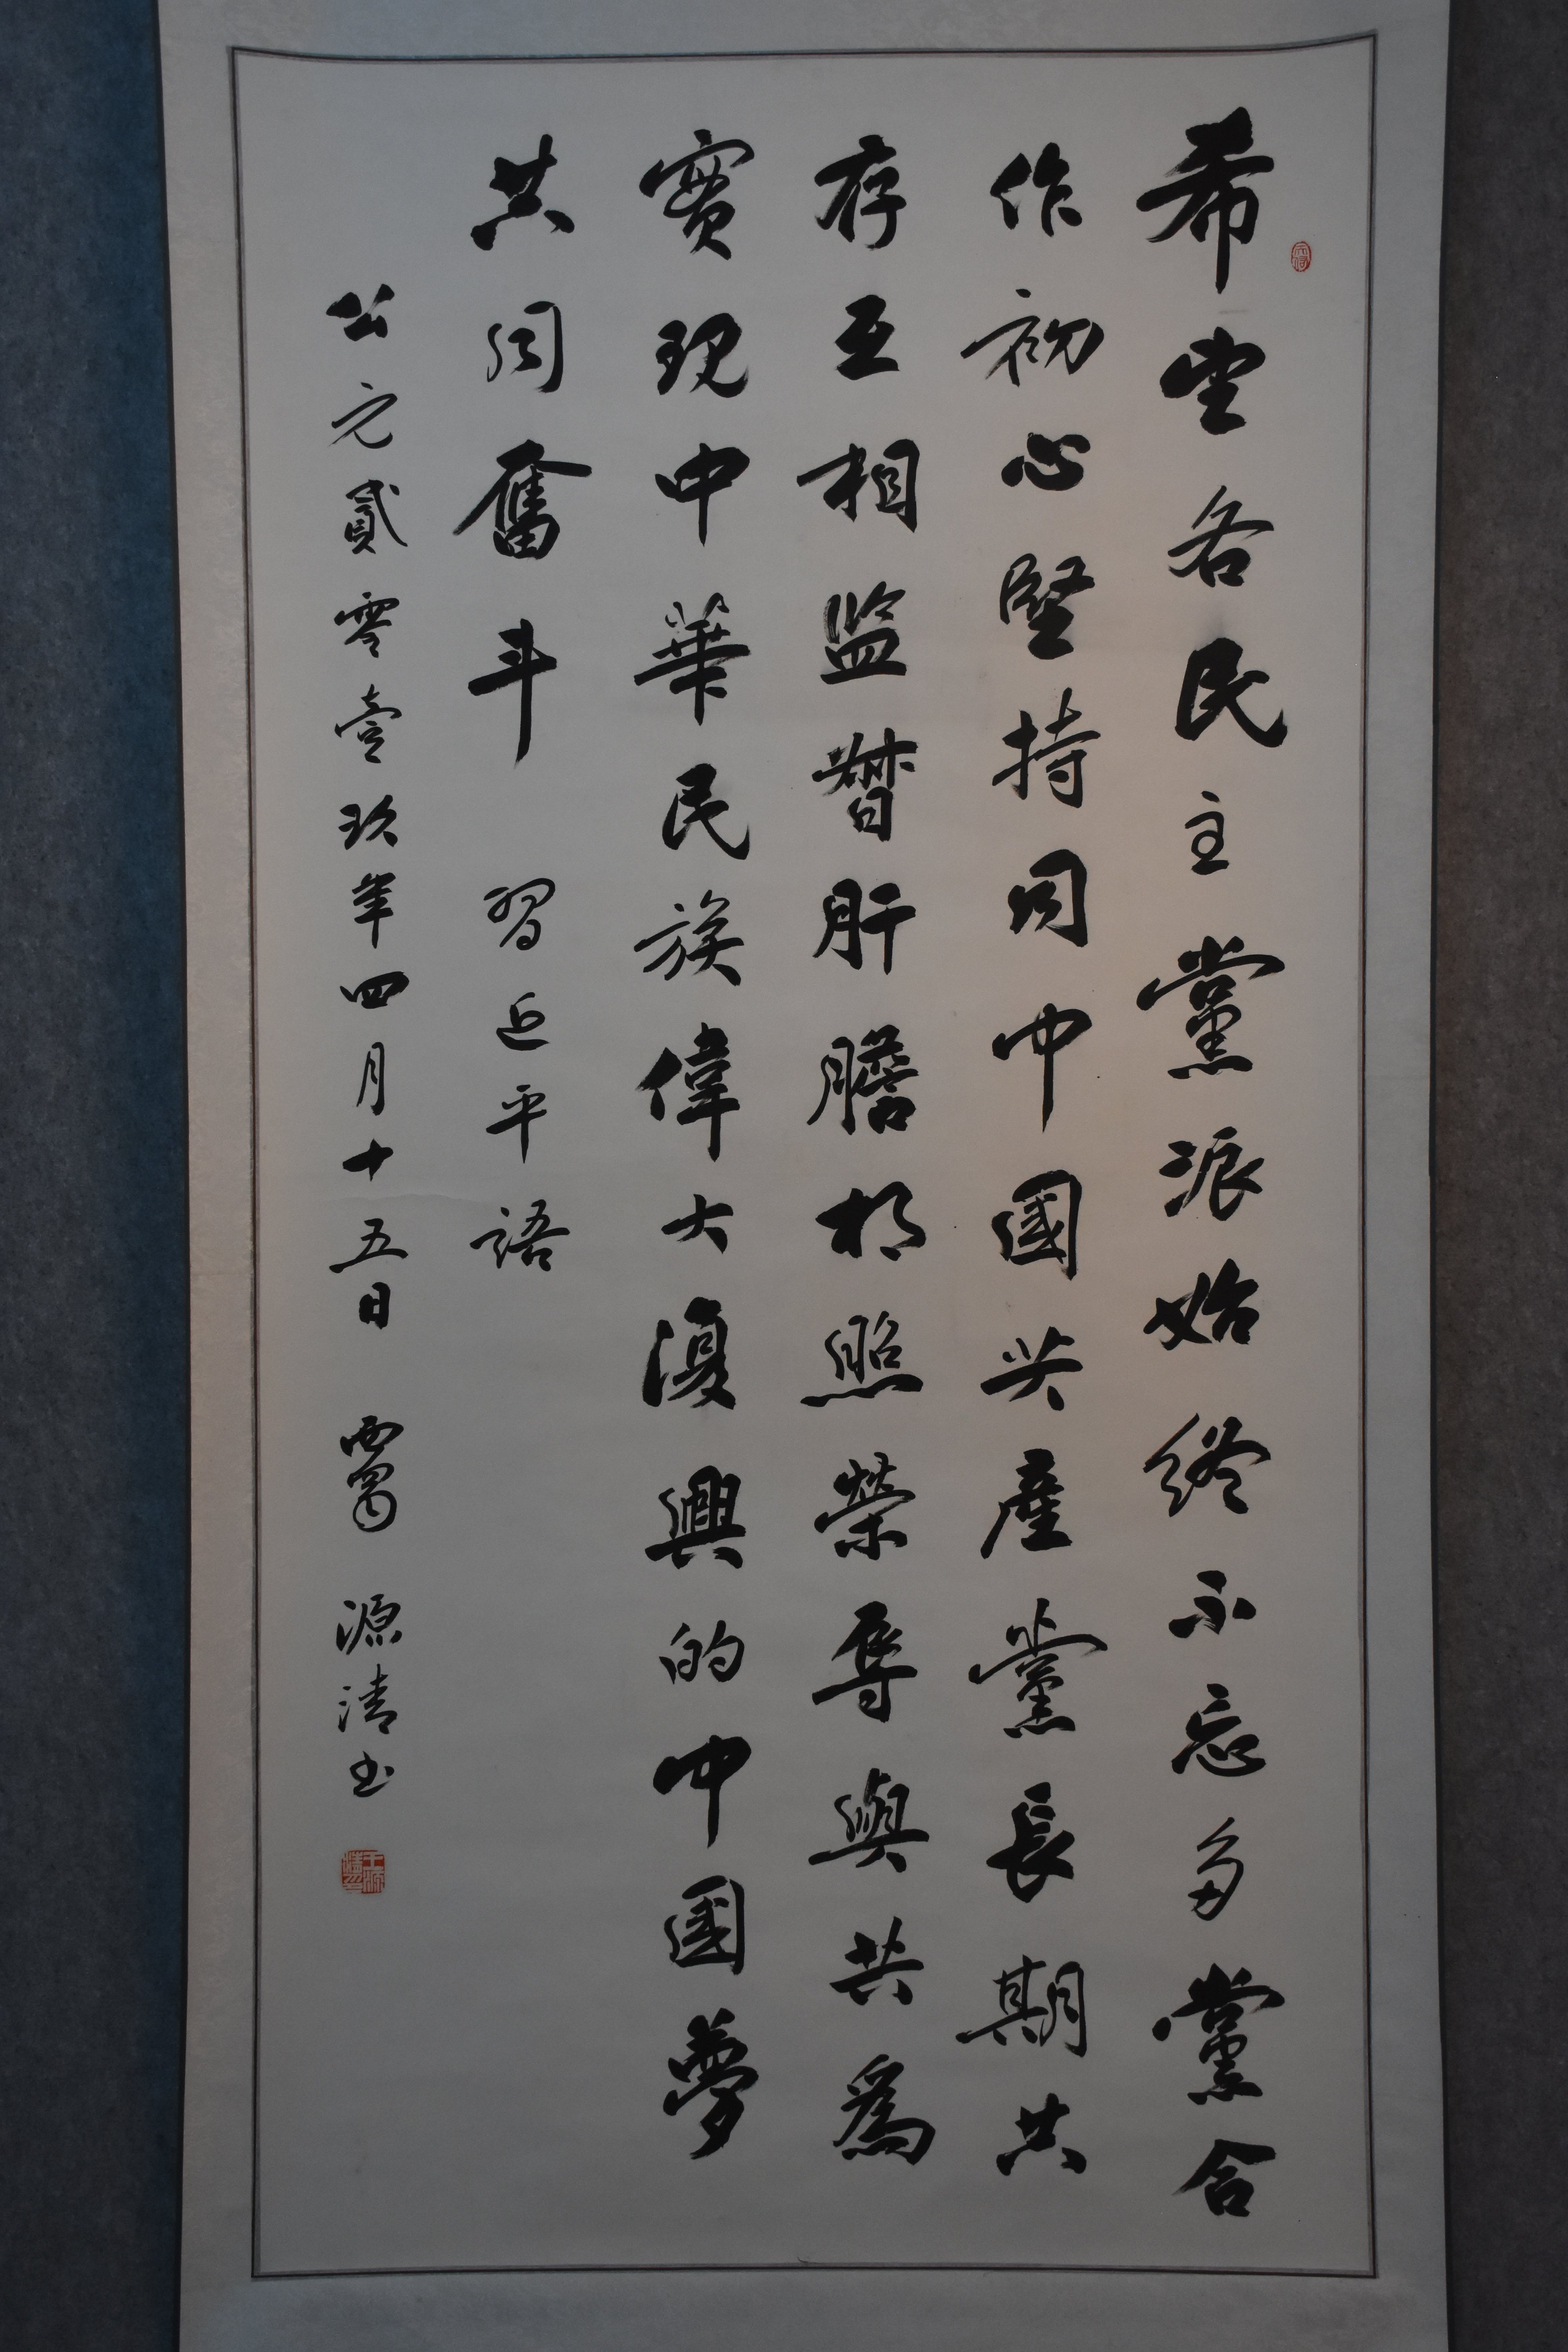 希望各民主黨派始終不忘多黨合
作初心堅持同中國共產黨長期共
存互相監督肝膽相照榮辱與共為
實現中華民族偉大復興的中國夢
共同奮斗 習近平語
公元貳零壹玖年四月十五日 西蜀 源清书